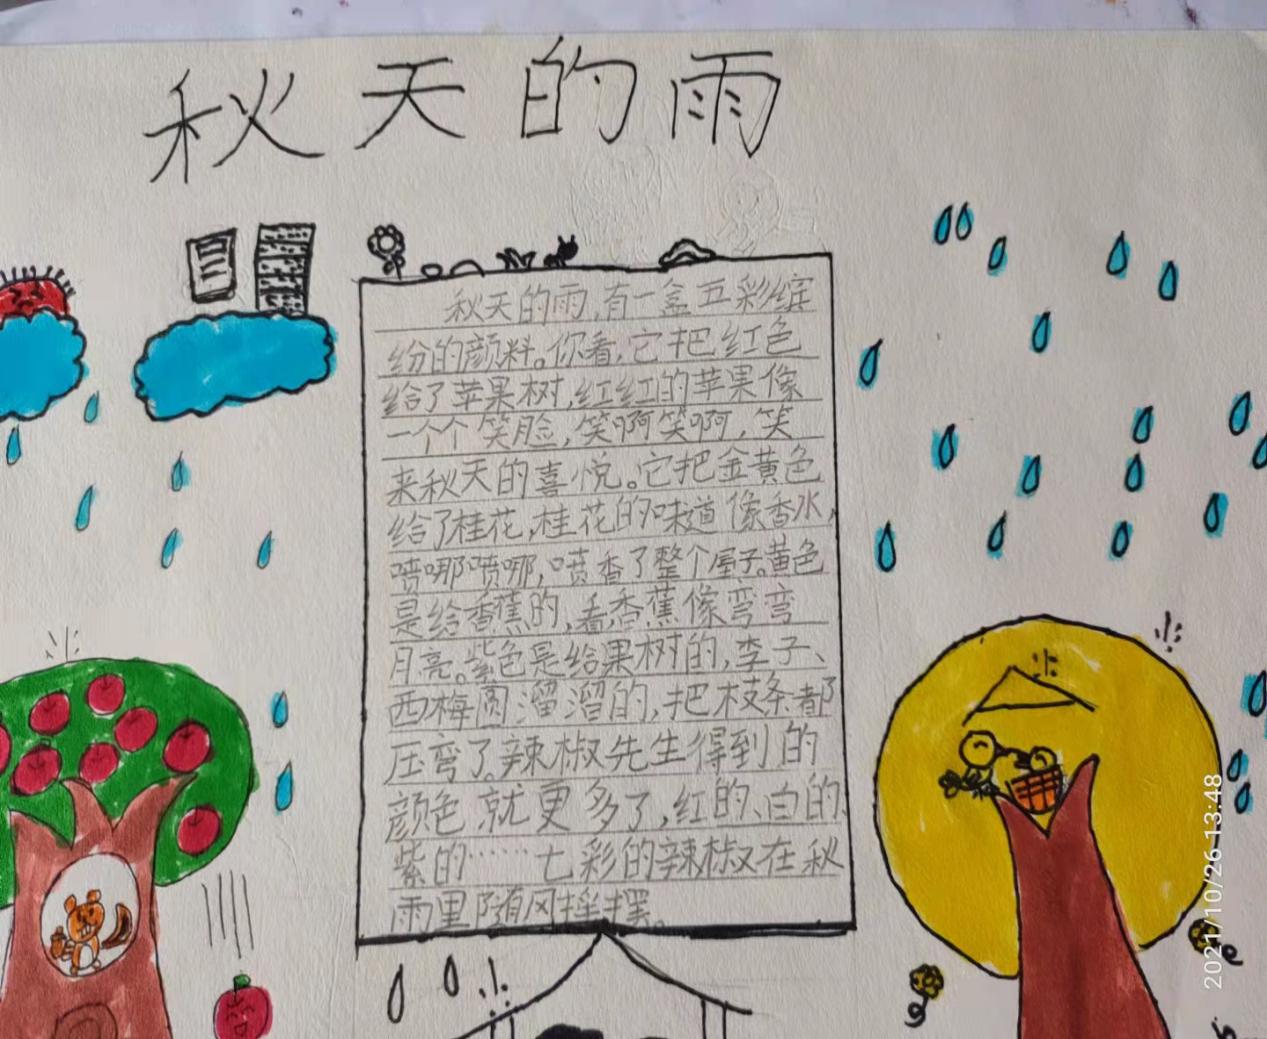 秋天的雨
秋天的雨,有一盒五彩缤
纷的颜料。你看,它把红色
给了苹果树,红红的苹果像
一个个笑脸,笑啊笑啊,笑
来秋天的喜悦。它把金黄色
给了桂花,桂花的味道像香水,
喷哪喷哪,喷香了整个屋子。黄色
是给香蕉的,看,香蕉像弯弯
月亮。紫色是给果树的,李子、
西梅圆溜溜的,把枝条都
压弯了。辣椒先生得到的
颜色就更多了,红的、白的、
紫的……七彩的辣椒在秋
雨里随风摇摆。
2021/10/26 13:48